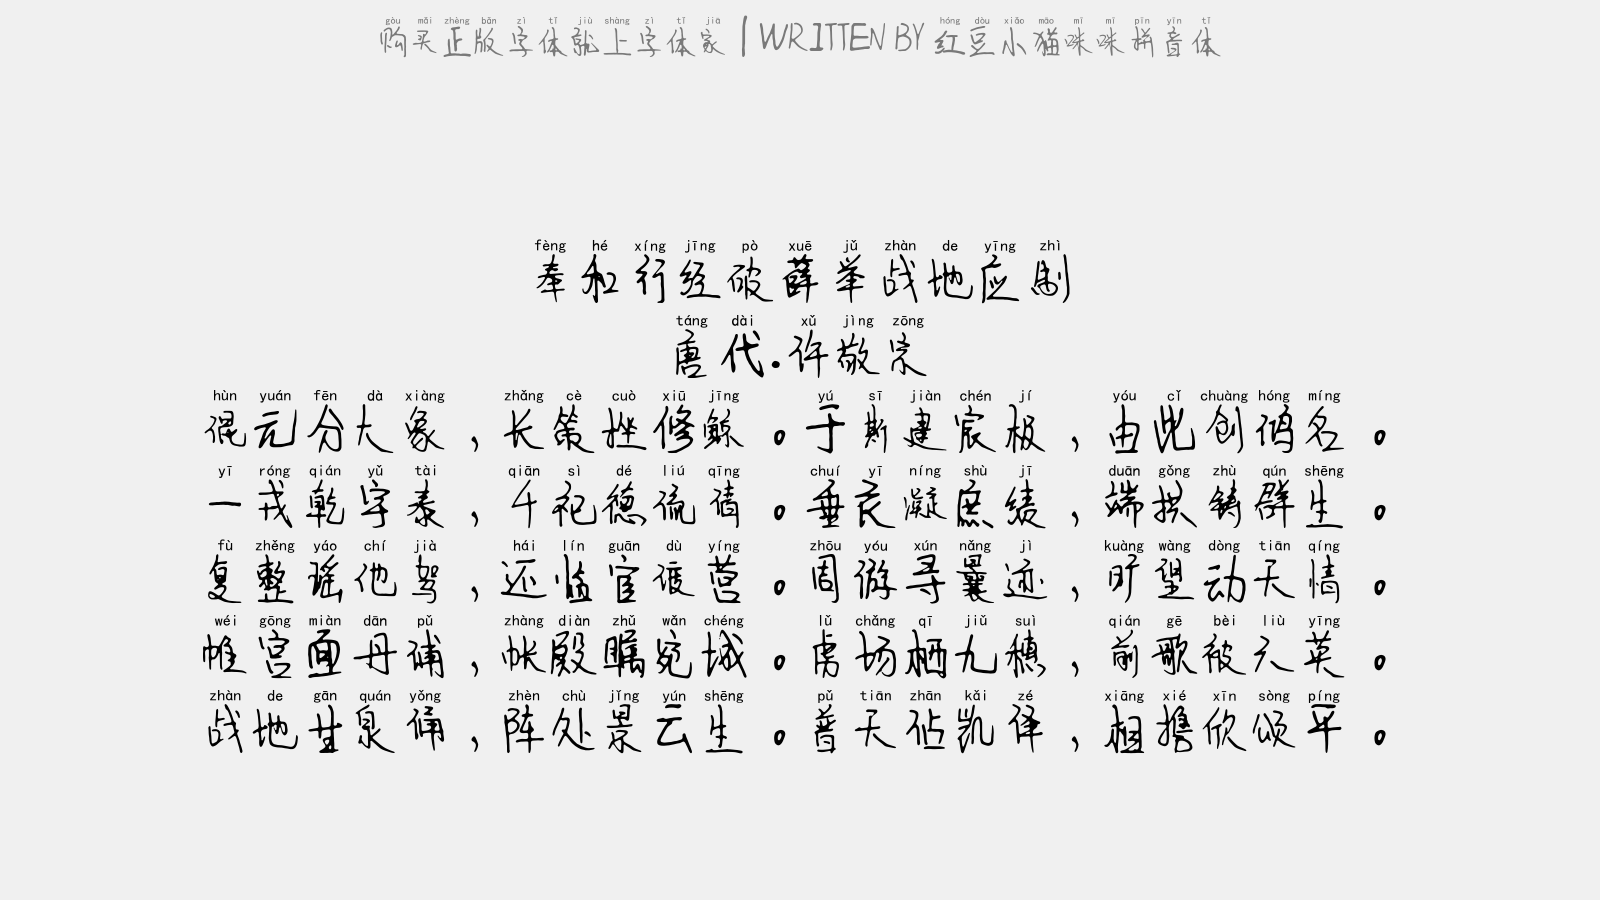 gòu mǎi zhèng bǎn zì tǐ jiù shàng zì tǐ jiā hóng dòu xiǎo māo mī mī pīn yīn tǐ
购买正版字体就上字体家 | WRITTEN BY 红豆小猫咪咪拼音体
fèng hé xíng jīng pò xuē jǔ zhàn de yīng zhì
奉和行经破薛举战地应制
táng dài xǔ jìng zōng
唐代.许敬宗
hùn yuán fēn dà xiàng zhǎng cè cuò xiū jīng yú sī jiàn chén jí yóu cǐ chuàng hóng míng
混元分大象，长策挫修鲸。于斯建宸极，由此创鸿名。
yī róng qián yǔ tài qiān sì dé liú qīng chuí yī níng shù jī duān gǒng zhù qún shēng
一戎乾宇泰，千祀德流清。垂衣凝庶绩，端拱铸群生。
fù zhěng yáo chí jià hái lín guān dù yíng zhōu yóu xún nǎng jì kuàng wàng dòng tiān qíng
复整瑶池驾，还临官渡营。周游寻曩迹，旷望动天情。
wéi gōng miàn dān pǔ zhàng diàn zhǔ wǎn chéng lǔ chǎng qī jiǔ suì qián gē bèi liù yīng
帷宫面丹浦，帐殿瞩宛城。虏场栖九穗，前歌被六英。
zhàn de gān quán yǒng zhèn chù jǐng yún shēng pǔ tiān zhān kǎi zé xiāng xié xīn sòng píng
战地甘泉涌，阵处景云生。普天沾凯泽，相携欣颂平。